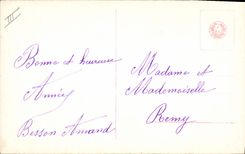 III
Bonne et heureuse
Année
Besson Amand
Madame et
Mademoiselle
Remy